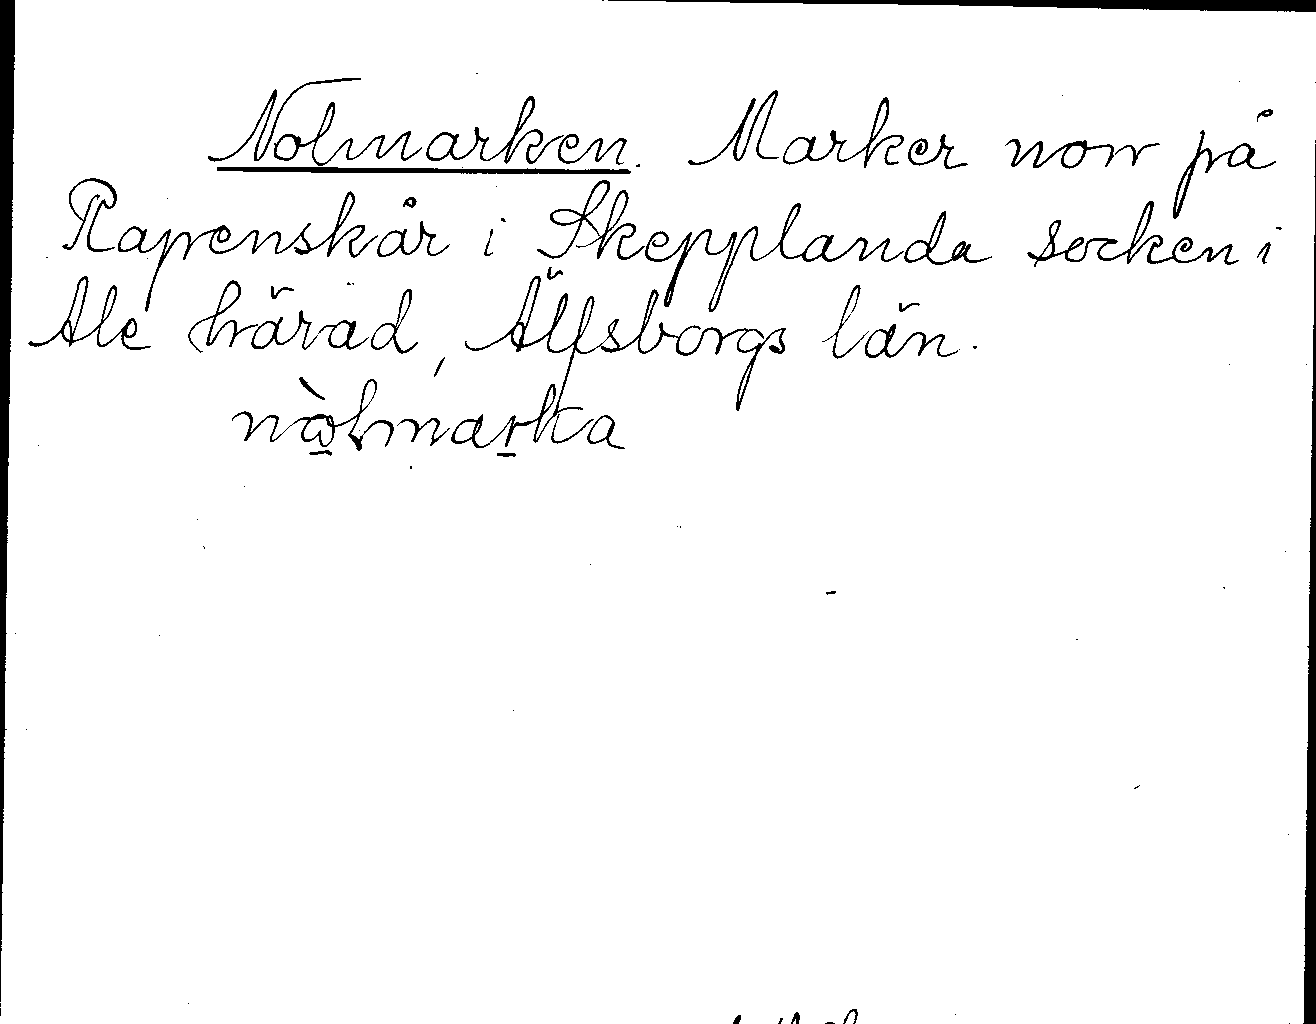 Nolmarken. Marker norr på
Rapenskår i Skepplanda socken i
Ale härad, Älfsborgs län.